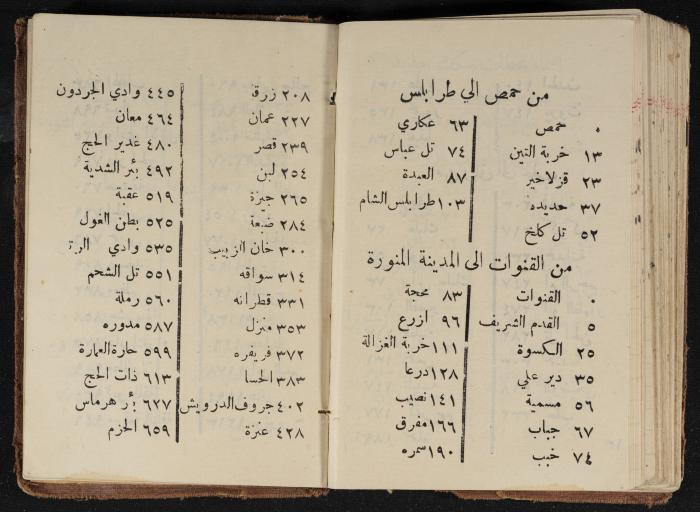 من حمص الي طرابلس
٠ حمص
١٣ خربة التين
٢٣ قزلاخير
٣٧ حديده
٥٢ تل كلخ
٦٣ عكاري
٧٤ تل عباس
٨٧ العبدة
١٠٣ طرابلس الشام
من القنوات الى المدينة المنورة
٠ القنوات
٥ القدم الشريف
٢٥ الكسوة
٣٥ دير علي
٥٦ مسمية
٦٧ جباب
٧٤ خبب
٨٣ محجة
٩٦ ازرع
١١١ خربة الغزالة
١٢٨ درعا
١٤١ نصيب
١٦٦ مفرق
١٩٠ سمره
٢٠٨ زرقة
٢٢٧ عمان
٢٣٩ قصر
٢٥٤ لبن
٢٦٥ جيزة
٢٨٤ ضبعة
٣٠٠ خان الزبيب
٣١٤ سواقه
٣٣١ قطرانه
٣٥٣ منزل
٣٧٢ فريفره
٣٨٣ الحسا
٤٠٢ جروف الدرويش
٤٢٨ عنزة
٤٤٥ وادي الجردون
٤٦٤ معان
٤٨٠ غدير الحج
٤٩٢ بئر الشدية
٥١٩ عقبة
٥٢٥ بطن الغول
٥٣٥ وادي
٥٥١ تل الشحم
٥٦٠ رملة
٥٨٧ مدوره
٥٩٩ حارة العمارة
٦١٣ ذات الحج
٦٢٧ بئر هرماس
٦٥٩ الحزم